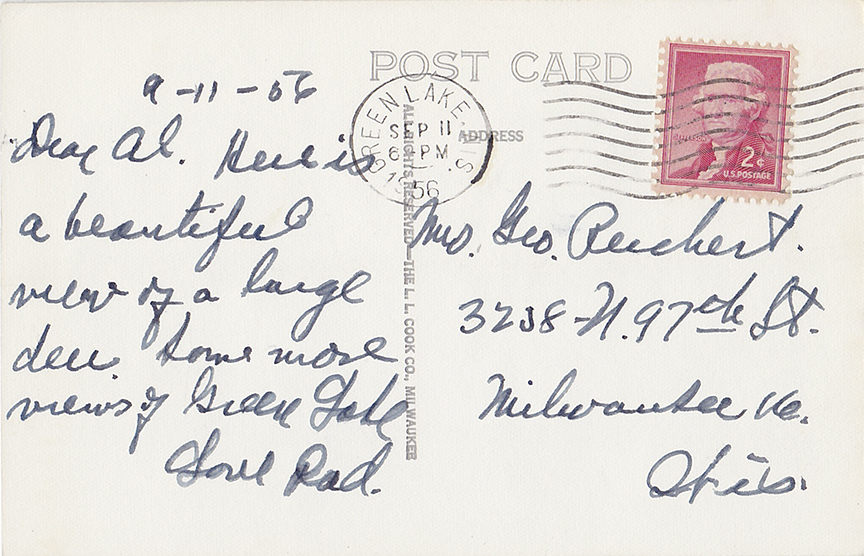 POST CARD
ADDRESS
GREEN LAKE, WIS.
SEP 11
6 PM
1956
JEFFERSON
2¢
U.S. POSTAGE
9-11-56
Dear Al. Here is
a beautiful
view of a large
deer. Some more
views of Green Lake
Love Dad.
ALL RIGHTS RESERVED—THE L. L. COOK CO., MILWAUKEE
Mrs. Geo. Reichert.
3238-N. 97th St.
Milwaukee 16.
Wis.